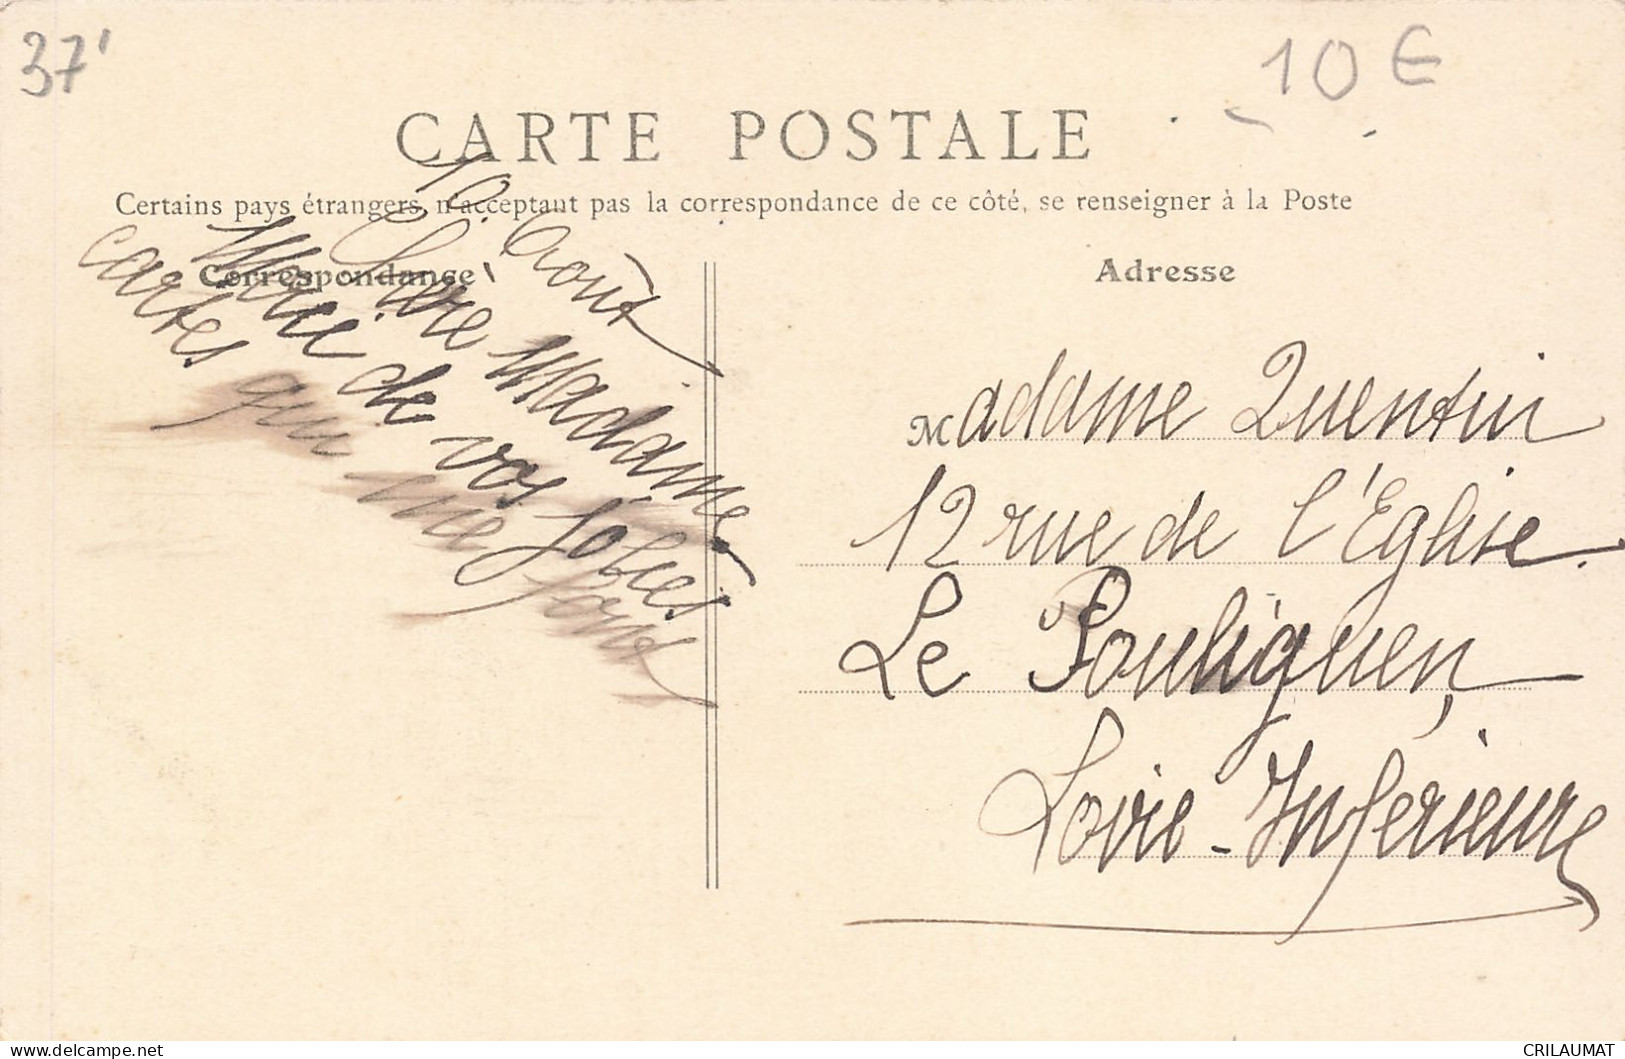 37'
10 €
CARTE POSTALE
Certains pays étrangers n'acceptant pas la correspondance de ce côté, se renseigner à la Poste
Correspondance
10 Août
Chère Madame
Merci de vos jolies
cartes qui me font
Adresse
Madame Quentin
12 rue de l'Eglise.
Le Pouliguen,
Loire-Inferieure
CRILAUMAT